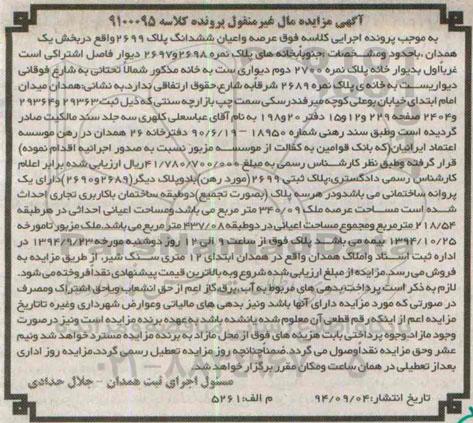 آگهی مزایده مال غیرمنقول پرونده کلاسه ۹۱۰۰۰۹۵
به موجب پرونده اجرایی کلاسه فوق عرصه واعیان ششدانگ پلاک ۲۶۹۹ واقع دربخش یک
همدان ،باحدود ومشخصات :جنوبأبخانه های پلاک نمره ۲۶۹۸و۲۶۹۷ دیوار فاصل اشتراکی است
غربأاول بدیوار خانه پلاک نمره ۲۷۰۰ دوم دیواری ست به خانه مذکور شمالأ تحتانی به شارع فوقانی
دیواریست به خانه ی پلاک نمره ۲۶۸۹ شرقأبه شارع حقوق ارتفاقی ندارد،به نشانی:همدان میدان
امام ابتدای خیابان بوعلی کوچه میرفندرسکی سمت چپ بازارچه سنتی که ذیل ثبت۲۹۳۶۳و۲۹۳۶۴
و۲۴۰۴ صفحه ۲۲۹و۱۲و۱۵ دفتر ۲۰و۱۹۸ به نام آقای عباسعلی کلهری سه جلد سند مالکیت صادر
گردیده است وطبق سند رهنی شماره ۱۸۹۵۰ – ۹۰/۶/۱۹ دفترخانه ۲۶ همدان در رهن موسسه
اعتماد ایرانیان(که بانک قوامین به کفالت از موسسه مزبور نسبت به صدور اجرائیه اقدام نموده)
قرار گرفته وطبق نظر کارشناس رسمی به مبلغ ۴۱/۷۸۰/۷۰۰/۰۰۰ریال ارزیابی شده برابر اعلام
کارشناس رسمی دادگستری،پلاک ثبتی ۲۶۹۹ (مورد رهن)بادوپلاک دیگر(۲۶۸۹و۲۶۹۰)دارای یک
پروانه ساختمانی می باشدودر هرسه پلاک (بصورت تجمیع)دوطبقه ساختمان باکاربری تجاری احداث
شده است مساحت عرصه ملک ۳۴۰/۰۹ متر مربع می باشدومساحت اعیانی احداثی در هرطبقه
۲۱۸/۵۴ مترمربع ومجموع مساحت اعیانی در دوطبقه ۴۳۷/۰۸ مترمربع می باشد.ملک مزبور تامورخه
۱۳۹۴/۱۰/۲۵ بیمه می باشد پلاک فوق از ساعت ۹ الی ۱۲ روز دوشنبه مورخه ۱۳۹۴/۹/۲۳ در
اداره ثبت اسناد واملاک همدان واقع در همدان ابتدای ۱۲ متری سنگ شیر، از طریق مزایده به
فروش می رسد.مزایده از مبلغ ارزیابی شده شروع وبه بالاترین قیمت پیشنهادی نقدأفروخته می شود.
لازم به ذکر است پرداخت بدهی های مربوط به آب،برق،گاز اعم از حق انشعاب ویاحق اشتراک ومصرف
در صورتی که مورد مزایده دارای آنها باشد ونیز بدهی های مالیاتی وعوارض شهرداری وغیره تاتاریخ
مزایده اعم از اینکه رقم قطعی آن معلوم شده یانشده باشد به عهده برنده مزایده است ونیز درصورت
وجود مازاد،وجوه پرداختی بابت هزینه های فوق از محل مازاد به برنده مزایده مسترد خواهد شد ونیم
عشر وحق مزایده نقدأوصول می گردد.ضمنأچنانچه روز مزایده تعطیل رسمی گردد،مزایده روز اداری
بعداز تعطیلی در همان ساعت ومکان مقرر برگزار خواهد شد.
مسئول اجرای ثبت همدان – جلال حدادی
تاریخ انتشار:۹۴/۰۹/۰۴ م الف:۵۲۶۱